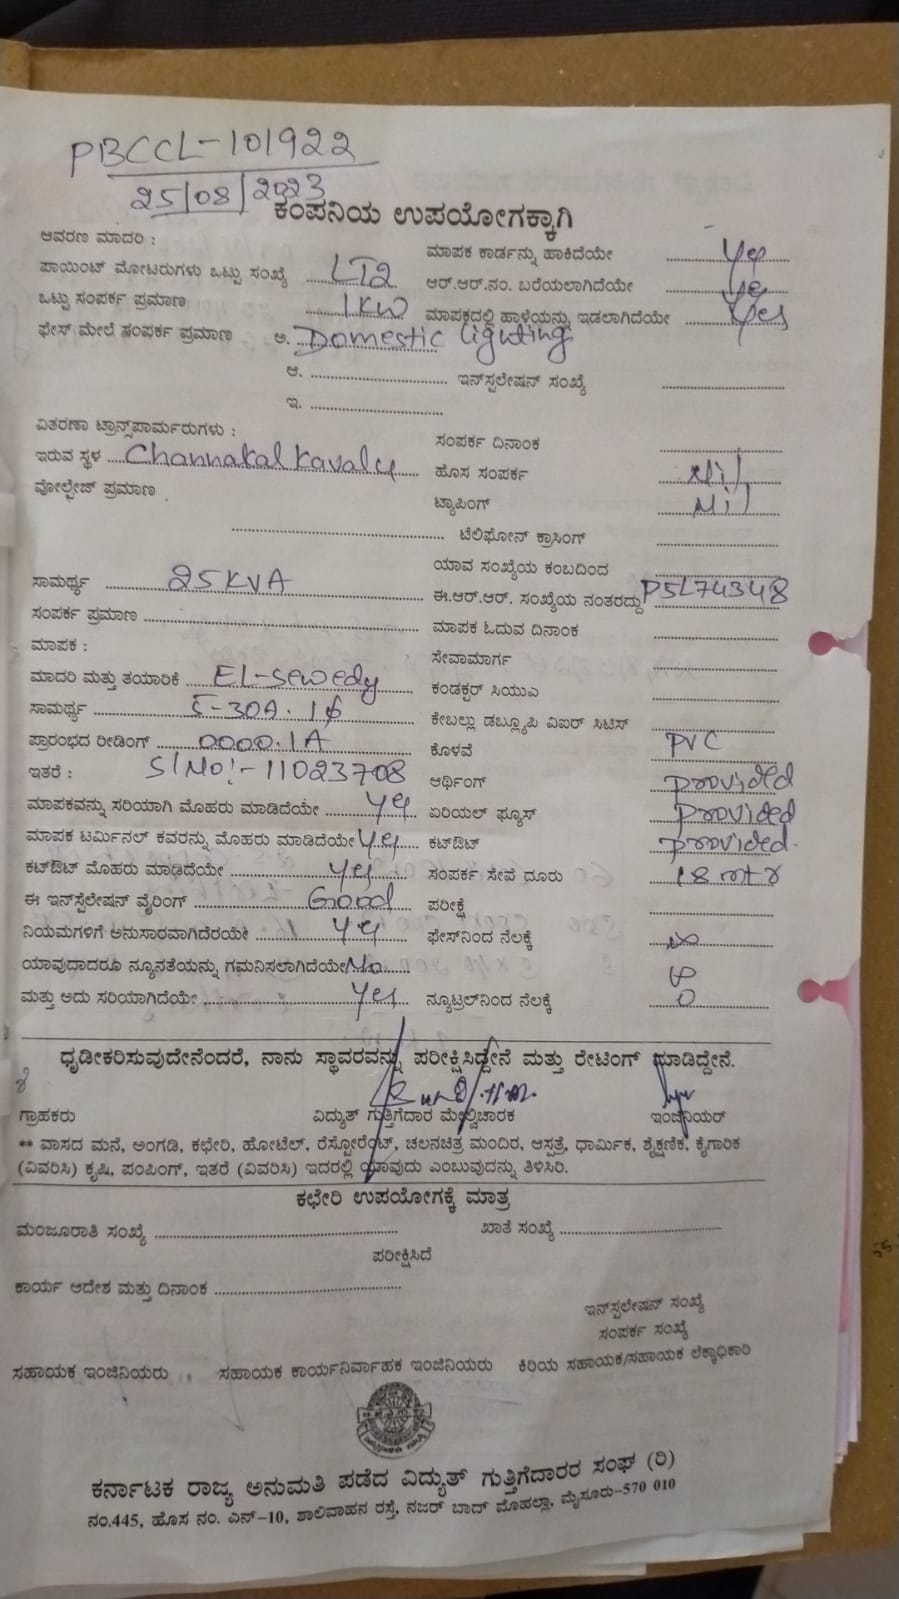 PBCCL-101922
25/08/2023
ಕಂಪನಿಯ ಉಪಯೋಗಕ್ಕಾಗಿ
ಆವರಣ ಮಾದರಿ :
ಮಾಪಕ ಕಾರ್ಡನ್ನು ಹಾಕಿದೆಯೇ Yes
ಪಾಯಿಂಟ್ ಮೋಟರುಗಳು ಒಟ್ಟು ಸಂಖ್ಯೆ LT2
ಆರ್.ಆರ್.ನಂ. ಬರೆಯಲಾಗಿದೆಯೇ Yes
ಒಟ್ಟು ಸಂಪರ್ಕ ಪ್ರಮಾಣ 1KW
ಮಾಪಕದಲ್ಲಿ ಹಾಳೆಯನ್ನು ಇಡಲಾಗಿದೆಯೇ Yes
ಫೇಸ್ ಮೇಲೆ ಸಂಪರ್ಕ ಪ್ರಮಾಣ ಅ. Domestic lighting
ಆ. ಇನ್‌ಸ್ಪಲೇಷನ್ ಸಂಖ್ಯೆ
ಇ.
ವಿತರಣಾ ಟ್ರಾನ್ಸ್‌ಪಾರ್ಮರುಗಳು :
ಸಂಪರ್ಕ ದಿನಾಂಕ
ಇರುವ ಸ್ಥಳ Channakal Kavalu
ಹೊಸ ಸಂಪರ್ಕ Nil
ವೋಲ್ಟೇಜ್ ಪ್ರಮಾಣ
ಟ್ಯಾಪಿಂಗ್ Nil
ಟೆಲಿಫೋನ್ ಕ್ರಾಸಿಂಗ್
ಯಾವ ಸಂಖ್ಯೆಯ ಕಂಬದಿಂದ
ಸಾಮರ್ಥ್ಯ 25KVA
ಈ.ಆರ್.ಆರ್. ಸಂಖ್ಯೆಯ ನಂತರದ್ದು P5L74348
ಸಂಪರ್ಕ ಪ್ರಮಾಣ
ಮಾಪಕ ಓದುವ ದಿನಾಂಕ
ಮಾಪಕ :
ಸೇವಾಮಾರ್ಗ
ಮಾದರಿ ಮತ್ತು ತಯಾರಿಕೆ EL-sewedy
ಕಂಡಕ್ಟರ್ ಸಿಯುಎ
ಸಾಮರ್ಥ್ಯ 5-30A. 1ϕ
ಕೇಬಲ್ಲು ಡಬ್ಲ್ಯೂಪಿ ವಿಐರ್ ಸಿಟಿಸ್
ಪ್ರಾರಂಭದ ರೀಡಿಂಗ್ 0000.1A
ಕೊಳವೆ PVC
ಇತರೆ : S/No:- 11023708
ಆರ್ಥಿಂಗ್ provided
ಮಾಪಕವನ್ನು ಸರಿಯಾಗಿ ಮೊಹರು ಮಾಡಿದೆಯೇ Yes
ಏರಿಯಲ್ ಫ್ಯೂಸ್ provided
ಮಾಪಕ ಟರ್ಮಿನಲ್ ಕವರನ್ನು ಮೊಹರು ಮಾಡಿದೆಯೇ Yes
ಕಟ್‌ಔಟ್ provided.
ಕಟ್‌ಔಟ್ ಮೊಹರು ಮಾಡಿದೆಯೇ Yes
ಸಂಪರ್ಕ ಸೇವೆ ದೂರು 18 mtr
ಈ ಇನ್‌ಸ್ಪಲೇಷನ್ ವೈರಿಂಗ್ Good
ಪರೀಕ್ಷೆ
ನಿಯಮಗಳಿಗೆ ಅನುಸಾರವಾಗಿದೆರಯೇ Yes
ಫೇಸ್‌ನಿಂದ ನೆಲಕ್ಕೆ ∞
ಯಾವುದಾದರೂ ನ್ಯೂನತೆಯನ್ನು ಗಮನಿಸಲಾಗಿದೆಯೇ No
ಮತ್ತು ಅದು ಸರಿಯಾಗಿದೆಯೇ Yes
ನ್ಯೂಟ್ರಲ್‌ನಿಂದ ನೆಲಕ್ಕೆ 0
ಧೃಡೀಕರಿಸುವುದೇನೆಂದರೆ, ನಾನು ಸ್ಥಾವರವನ್ನು ಪರೀಕ್ಷಿಸಿದ್ದೇನೆ ಮತ್ತು ರೇಟಿಂಗ್ ಮಾಡಿದ್ದೇನೆ.
ಗ್ರಾಹಕರು ವಿದ್ಯುತ್ ಗುತ್ತಿಗೆದಾರ ಮೇಲ್ವಿಚಾರಕ ಇಂಜಿನಿಯರ್
** ವಾಸದ ಮನೆ, ಅಂಗಡಿ, ಕಛೇರಿ, ಹೋಟೆಲ್, ರೆಸ್ಟೋರೆಂಟ್, ಚಲನಚಿತ್ರ ಮಂದಿರ, ಆಸ್ಪತ್ರೆ, ಧಾರ್ಮಿಕ, ಶೈಕ್ಷಣಿಕ, ಕೈಗಾರಿಕ
(ವಿವರಿಸಿ) ಕೃಷಿ, ಪಂಪಿಂಗ್, ಇತರೆ (ವಿವರಿಸಿ) ಇದರಲ್ಲಿ ಯಾವುದು ಎಂಬುವುದನ್ನು ತಿಳಿಸಿರಿ.
ಕಛೇರಿ ಉಪಯೋಗಕ್ಕೆ ಮಾತ್ರ
ಮಂಜೂರಾತಿ ಸಂಖ್ಯೆ ಖಾತೆ ಸಂಖ್ಯೆ
ಪರೀಕ್ಷಿಸಿದೆ
ಕಾರ್ಯ ಆದೇಶ ಮತ್ತು ದಿನಾಂಕ
ಇನ್‌ಸ್ಪಲೇಷನ್ ಸಂಖ್ಯೆ
ಸಂಪರ್ಕ ಸಂಖ್ಯೆ
ಸಹಾಯಕ ಇಂಜಿನಿಯರು ಸಹಾಯಕ ಕಾರ್ಯನಿರ್ವಾಹಕ ಇಂಜಿನಿಯರು ಕಿರಿಯ ಸಹಾಯಕ/ಸಹಾಯಕ ಲೆಕ್ಕಾಧಿಕಾರಿ
ಕರ್ನಾಟಕ ರಾಜ್ಯ ಅನುಮತಿ ಪಡೆದ ವಿದ್ಯುತ್ ಗುತ್ತಿಗೆದಾರರ ಸಂಘ (ರಿ)
ನಂ.445, ಹೊಸ ನಂ. ಎನ್-10, ಶಾಲಿವಾಹನ ರಸ್ತೆ, ನಜರ್ ಬಾದ್ ಮೊಹಲ್ಲಾ, ಮೈಸೂರು-570 010